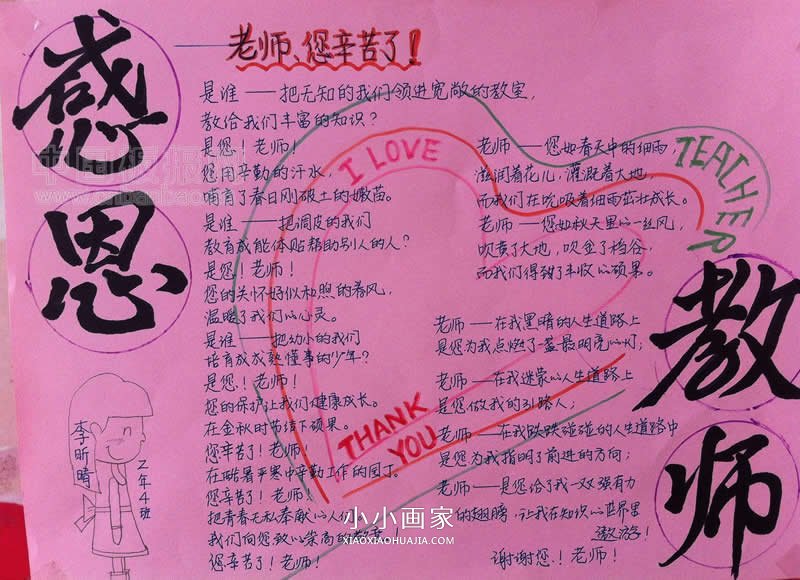 感恩
老师、您辛苦了！
是谁——把无知的我们领进宽敞的教室，
教给我们丰富的知识？
是您！老师！
您用辛勤的汗水，
哺育了春日刚破土的嫩苗。
是谁——把调皮的我们
教育成能体贴帮助别人的人？
是您！老师！
您的关怀好似和煦的春风，
温暖了我们心灵。
是谁——把幼小的我们
培育成成熟懂事的少年？
是您！老师！
您的保护让我们健康成长。
在金秋时节结下硕果。
您辛苦了！老师！
在酷暑严寒中辛勤工作的园丁。
您辛苦了！老师！
把青春无私奉献的人们
我们向您致以崇高的
您辛苦了！老师！
I LOVE
TEACHER
THANK
YOU
老师——您如春天中的细雨，
滋润着花儿，灌溉着大地，
而我们在吮吸着细雨茁壮成长。
老师——您如秋天里的一丝风，
吹黄了大地，吹金了稻谷，
而我们得到了丰收的硕果。
老师——在我黑暗的人生道路上
是您为我点燃了一盏最明亮的灯；
老师——在我迷蒙的人生道路上
是您做我的引路人；
老师——在我跌跌碰碰的人生道路中
是您为我指明了前进的方向；
老师——是您给了我一双强有力
的翅膀，让我在知识的世界里
遨游！
谢谢您！老师！
教师
李昕晴
2年4班
小小画家
XIAOXIAOHUAJIA.COM